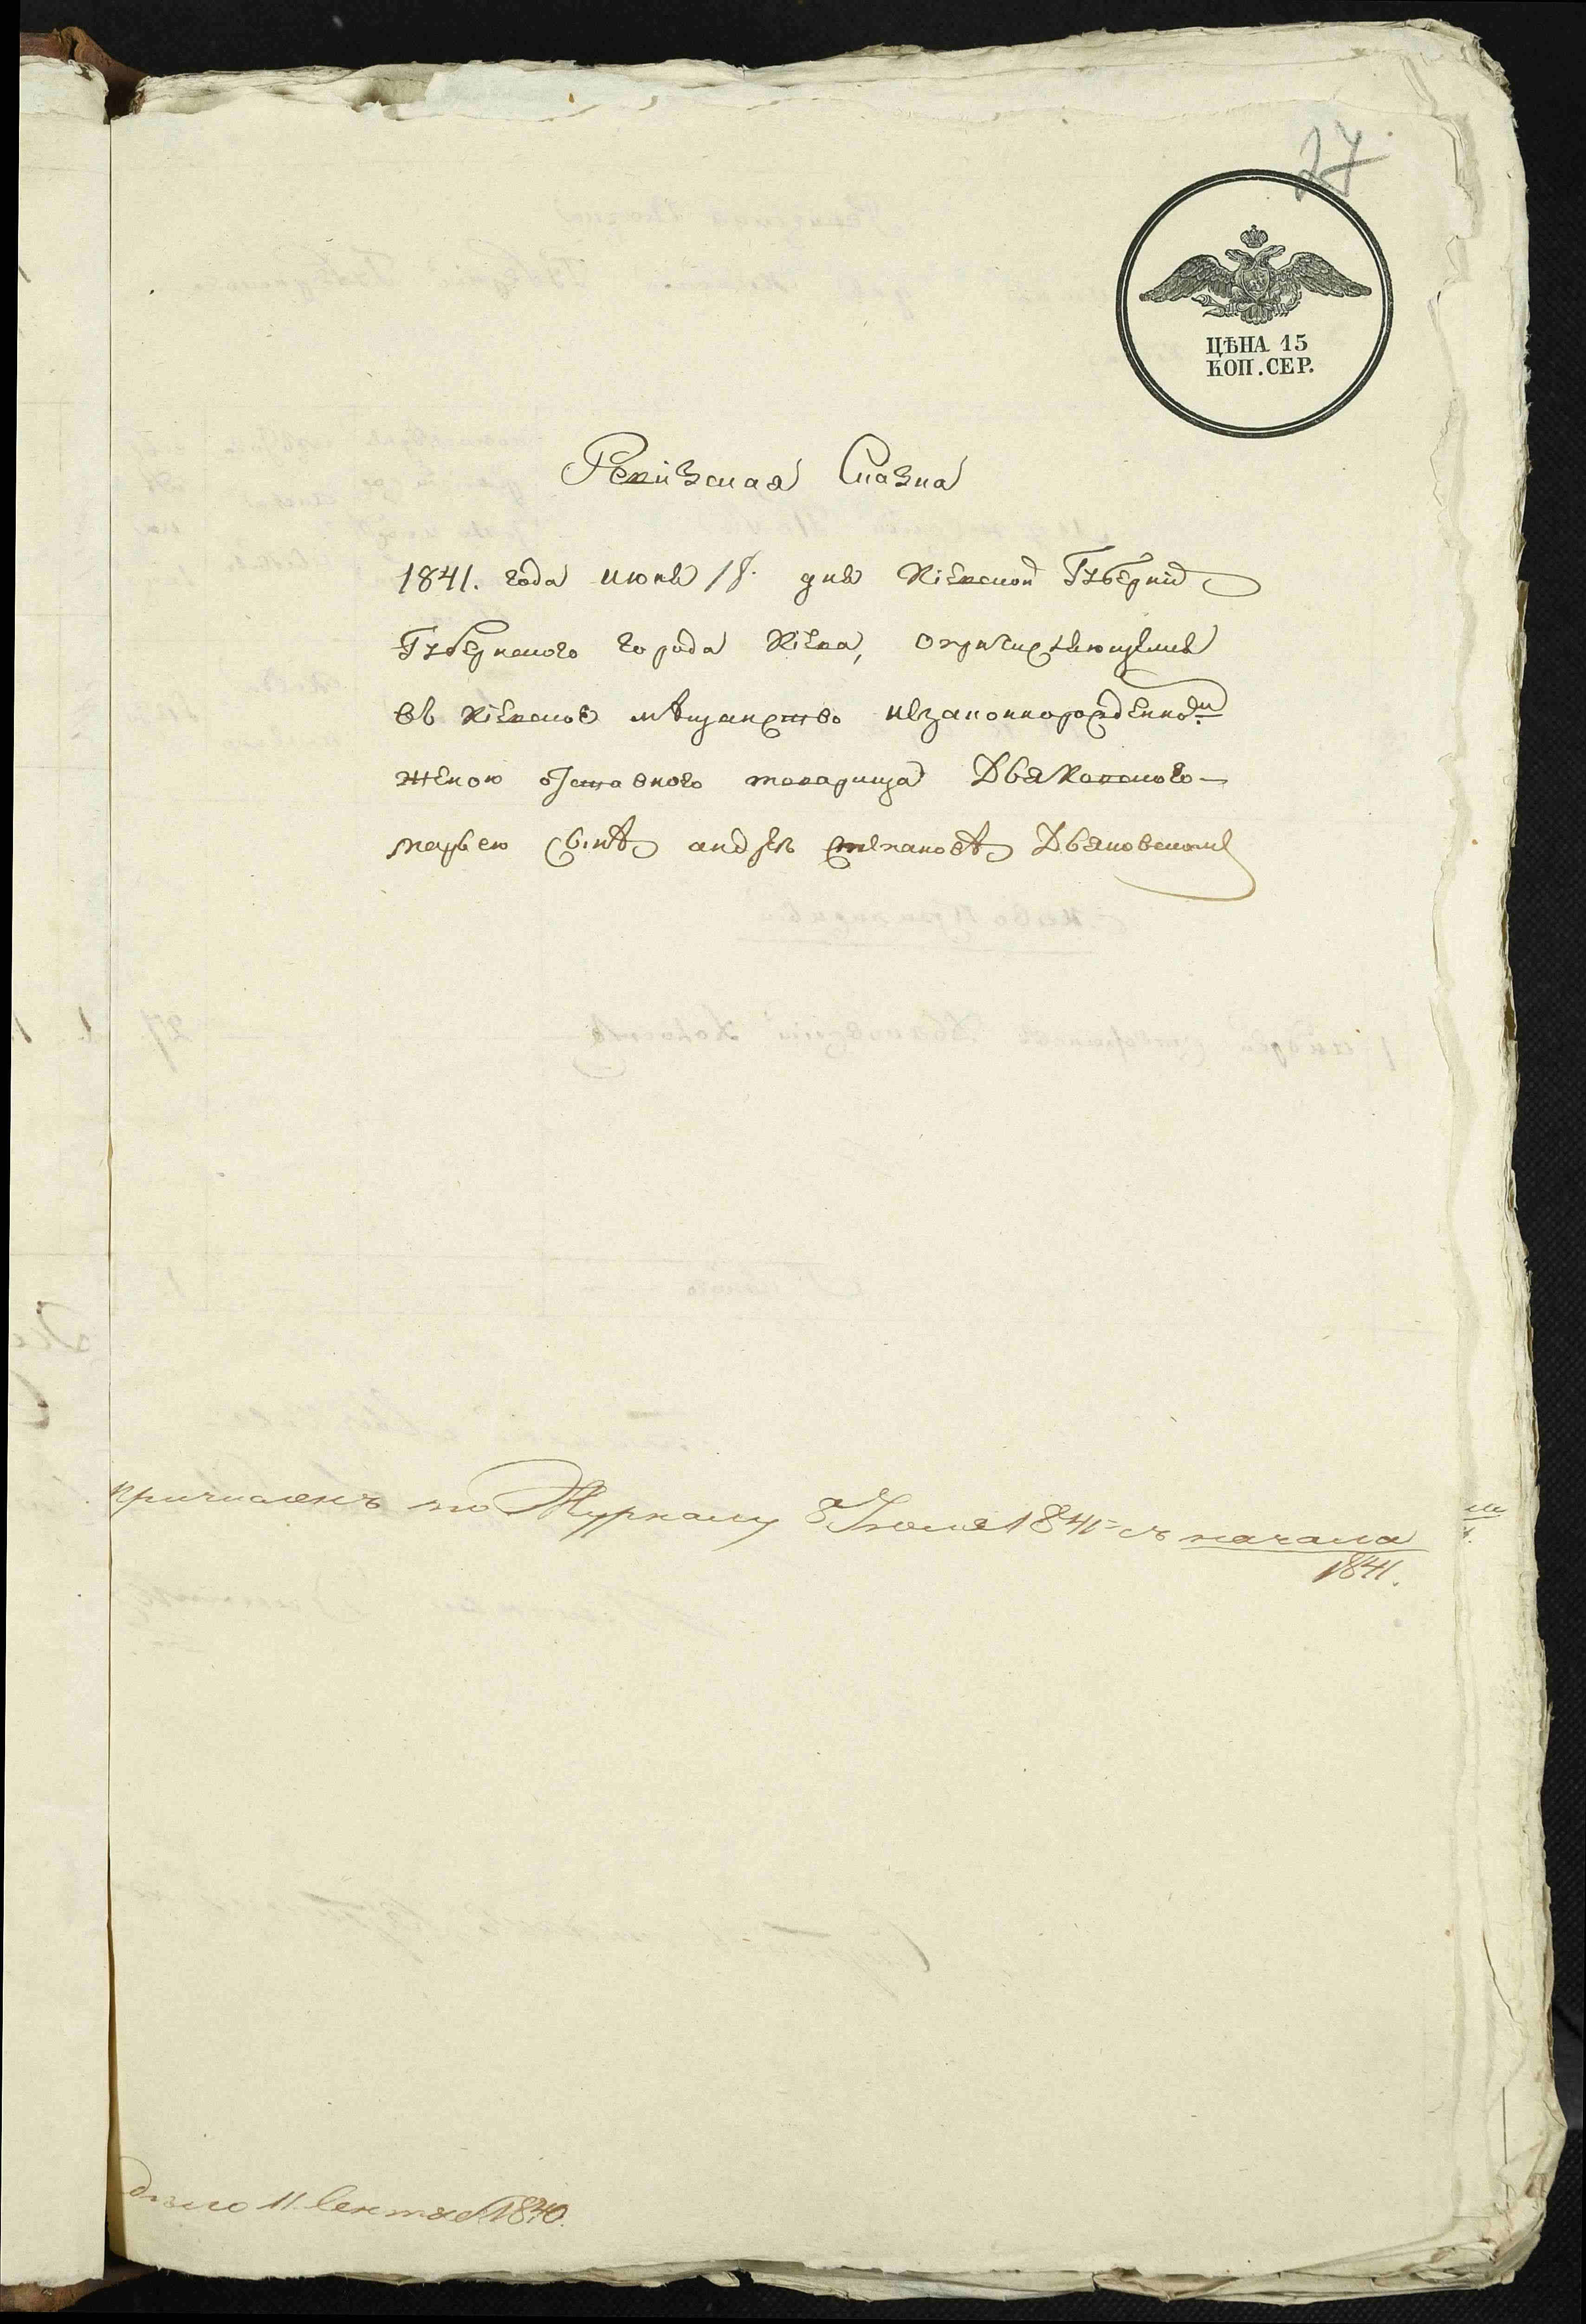 27
ЦѢНА 15
КОП. СЕР.
Ревизская Сказка
1841. года июня 18. дня Кіевской Губерніи
Губернского города Кіева, о
въ Кіевское мѣщанство незаконнорожденномъ
женою отставного товарища Дьяковского
марьею сынѣ андреѣ степановѣ Дьяковскомъ
причисленъ по Журналу 8 Іюля 1841 съ начала
1841.
дѣло 11. Сентяб 1840.